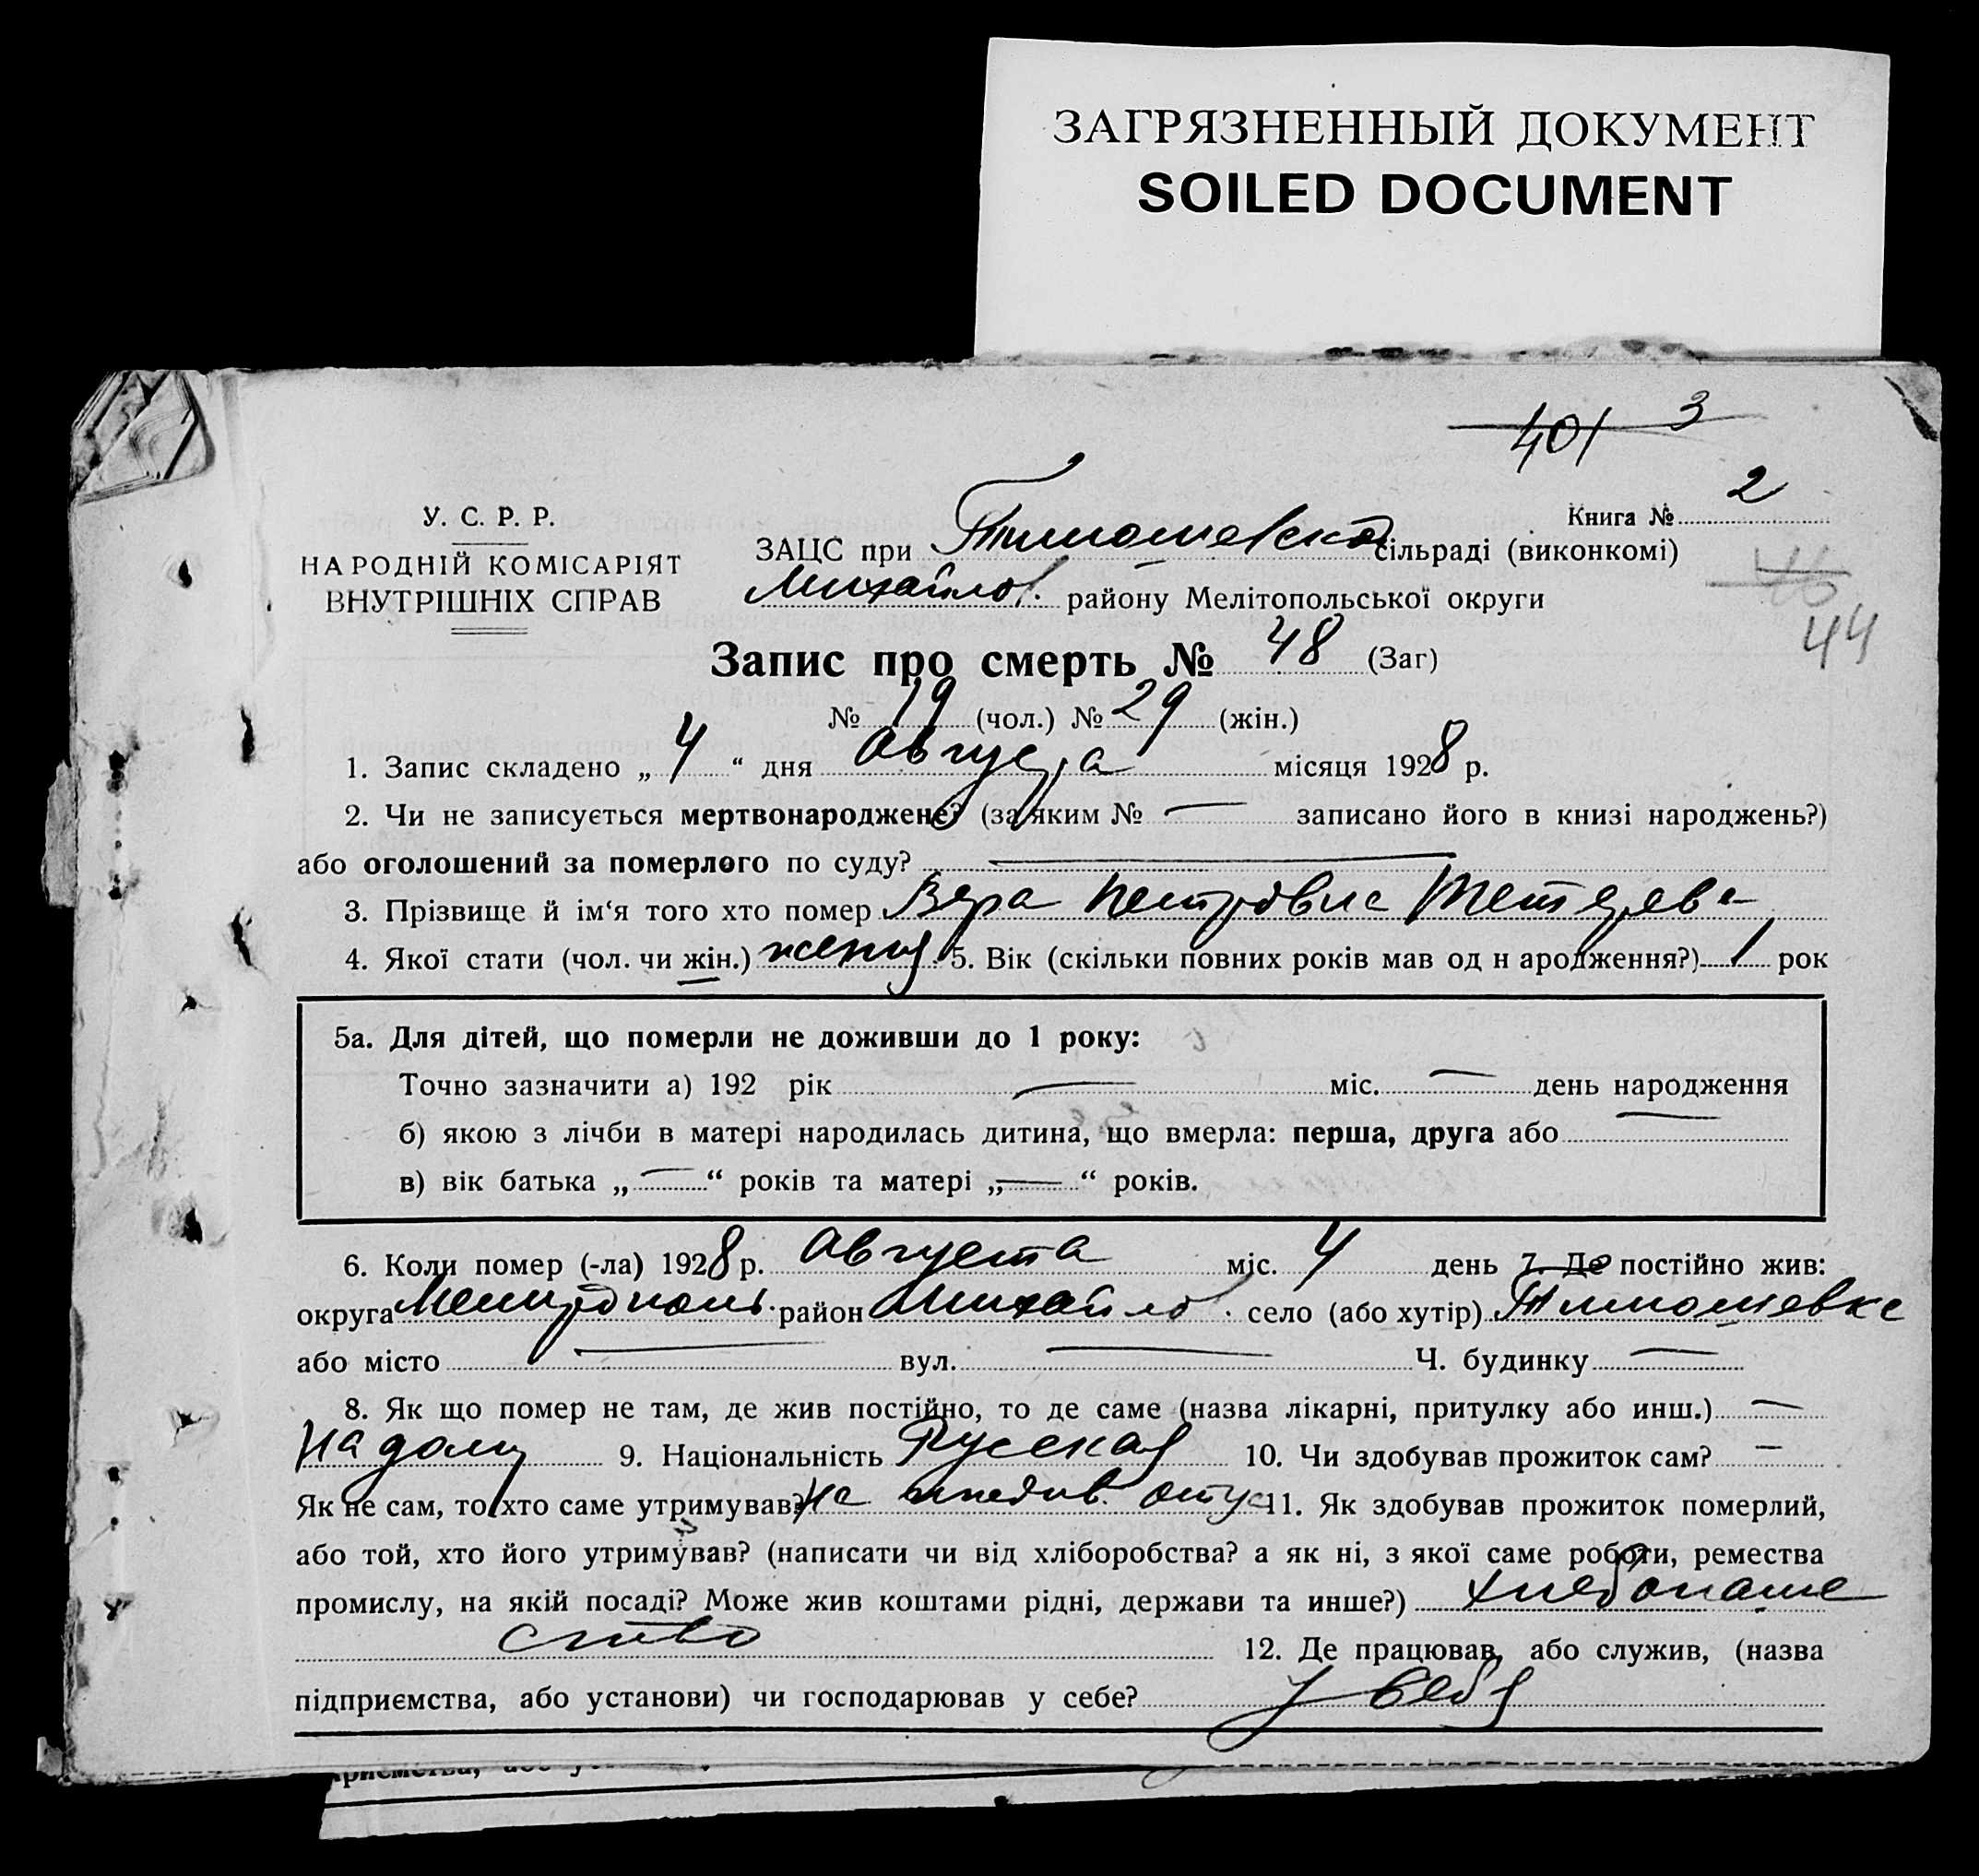 ЗАГРЯЗНЕННЫЙ ДОКУМЕНТ
SOILED DOCUMENT
401 3
Книга № 2
У. С. Р. Р.
НАРОДНІЙ КОМІСАРІЯТ
ВНУТРІШНІХ СПРАВ
ЗАЦС при Тимошевской сільраді (виконкомі)
Михайлов. району Мелітопольської округи
46
44
Запис про смерть № 48 (Заг)
№ 19 (чол.) № 29 (жін.)
1. Запис складено „ 4 “ дня Августа місяця 1928 р.
2. Чи не записується мертвонароджене? (за яким № — записано його в книзі народжень?)
або оголошений за померлого по суду? —
3. Прізвище й ім‘я того хто помер Вера Петровна
4. Якої стати (чол. чи жін.) 5. Вік (скільки повних років мав од н ародження?) 1 рок
5а. Для дітей, що померли не доживши до 1 року:
Точно зазначити а) 192 рік — міс. — день народження
б) якою з лічби в матері народилась дитина, що вмерла: перша, друга або —
в) вік батька „ — “ років та матері „ — “ років.
6. Коли помер (-ла) 1928 р. Августа міс. 4 день 7. Де постійно жив:
округа Мелитополь. район Михайлов. село (або хутір) Тимошевке
або місто — вул. — Ч. будинку —
8. Як що помер не там, де жив постійно, то де саме (назва лікарні, притулку або инш.) —
На дому 9. Національність Русская 10. Чи здобував прожиток сам? —
Як не сам, то хто саме утримував? На иждив. отца 11. Як здобував прожиток померлий,
або той, хто його утримував? (написати чи від хліборобства? а як ні, з якої саме роботи, ремества
промислу, на якій посаді? Може жив коштами рідні, держави та инше?) хлебопаше
ство 12. Де працював, або служив, (назва
підприємства, або установи) чи господарював у себе? У себя